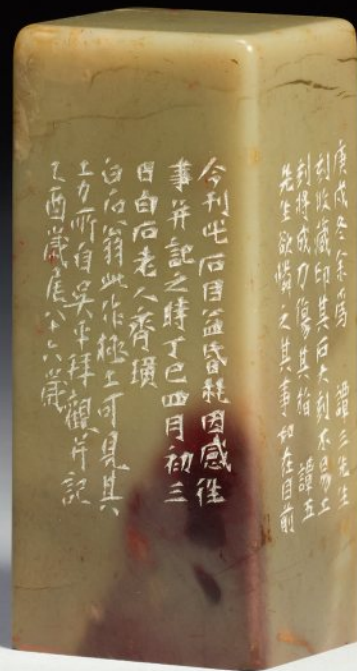 庚戌冬余為 譚三先生
刻收藏印其石大刻不易工
刻將成刀傷其指 譚五
先生欲憐之其事如在目前
今刊此石目益昏耗因感往
事并記之時丁巳四月初三
日白石老人齊璜
白石翁此作極工可見其
工力所自吳平拜觀并記
乙酉歲尾八十六歲